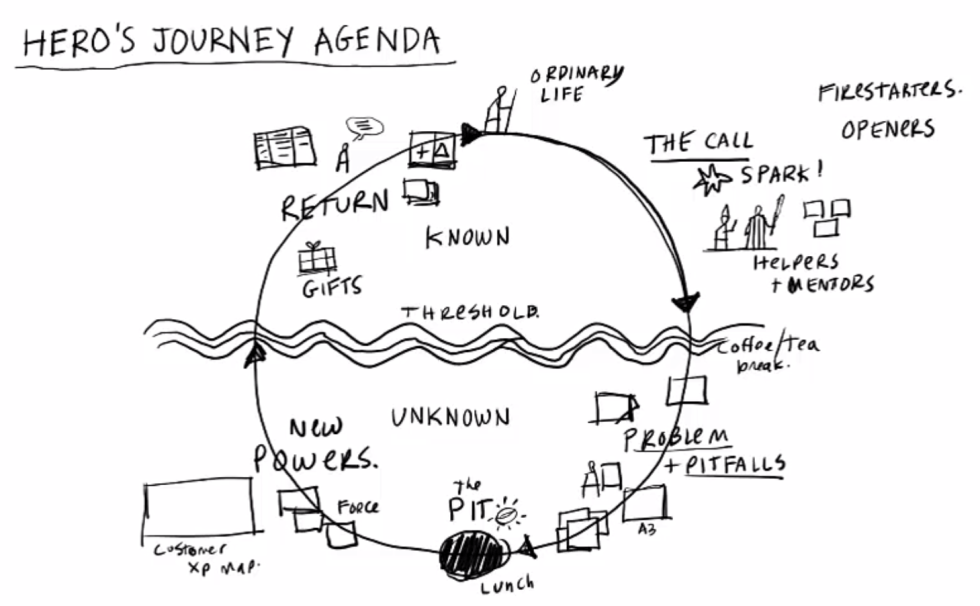 HERO'S JOURNEY AGENDA
ORDINARY
LIFE
FIRESTARTERS.
OPENERS
THE CALL
SPARK!
HELPERS
+ MENTORS
RETURN
KNOWN
GIFTS
THRESHOLD.
Coffee/tea
break.
UNKNOWN
NEW
POWERS.
PROBLEM
+ PITFALLS
The
PIT
FORCE
A3
Customer
XP MAP.
LUNCH